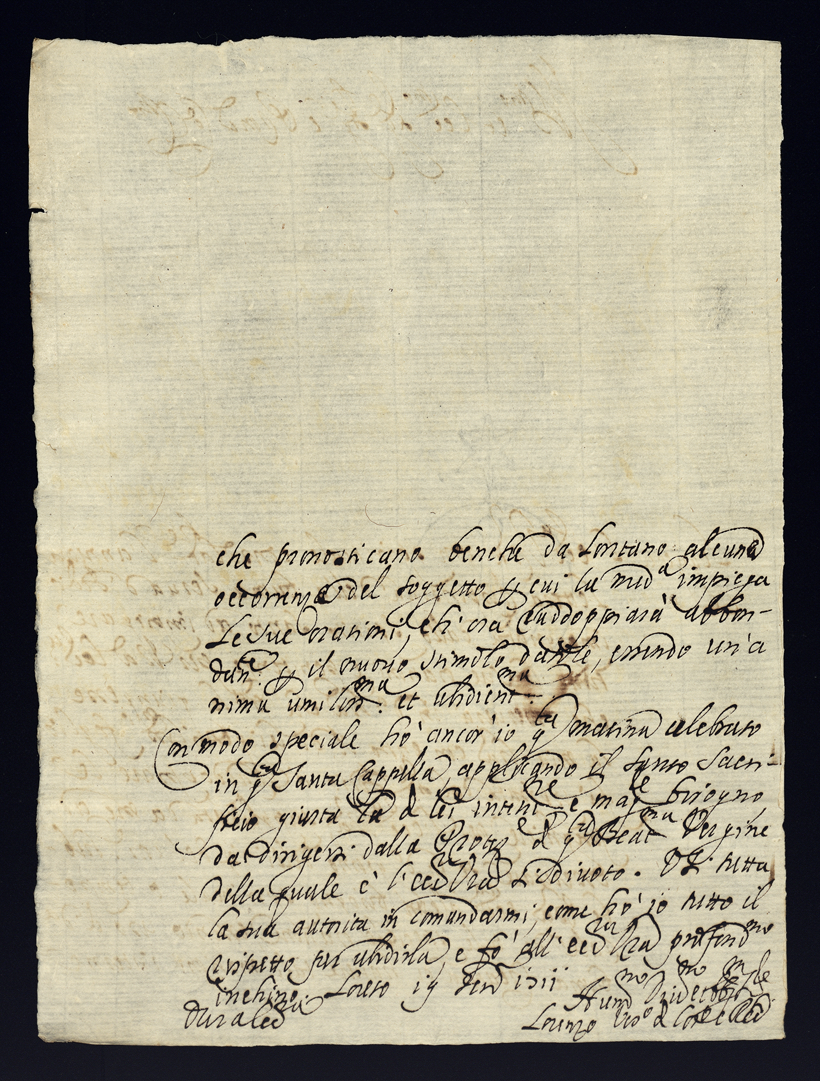 che pronosticano benche da lontano alcuna
occorrenza del soggetto p cui la med.a impiega
le sue orationi, ch'ora raddoppiarà abbon-
dan.te p il nuovo stimolo datole, essendo un'a
nima umiliss.ma et ubidient.ma
Con modo speciale hò ancor'io q.ta matina celebrato
in q.ta Santa Cappella, applicando il santo Sacri-
ficio giusta la di lei intent.ne e mag.re bisogno,
da dirigersi dalla Protez.e di q.ta Beat.ma Vergine
della quale è l'ecc. V.ra sì divoto. Di tutta
la sua autorità in comandarmi, come hò io tutto il
rispetto per ubidirla, e fò all'ecc. V.ra profond.mo
inchino. Loreto 19
Hum.mo
Lorenzo